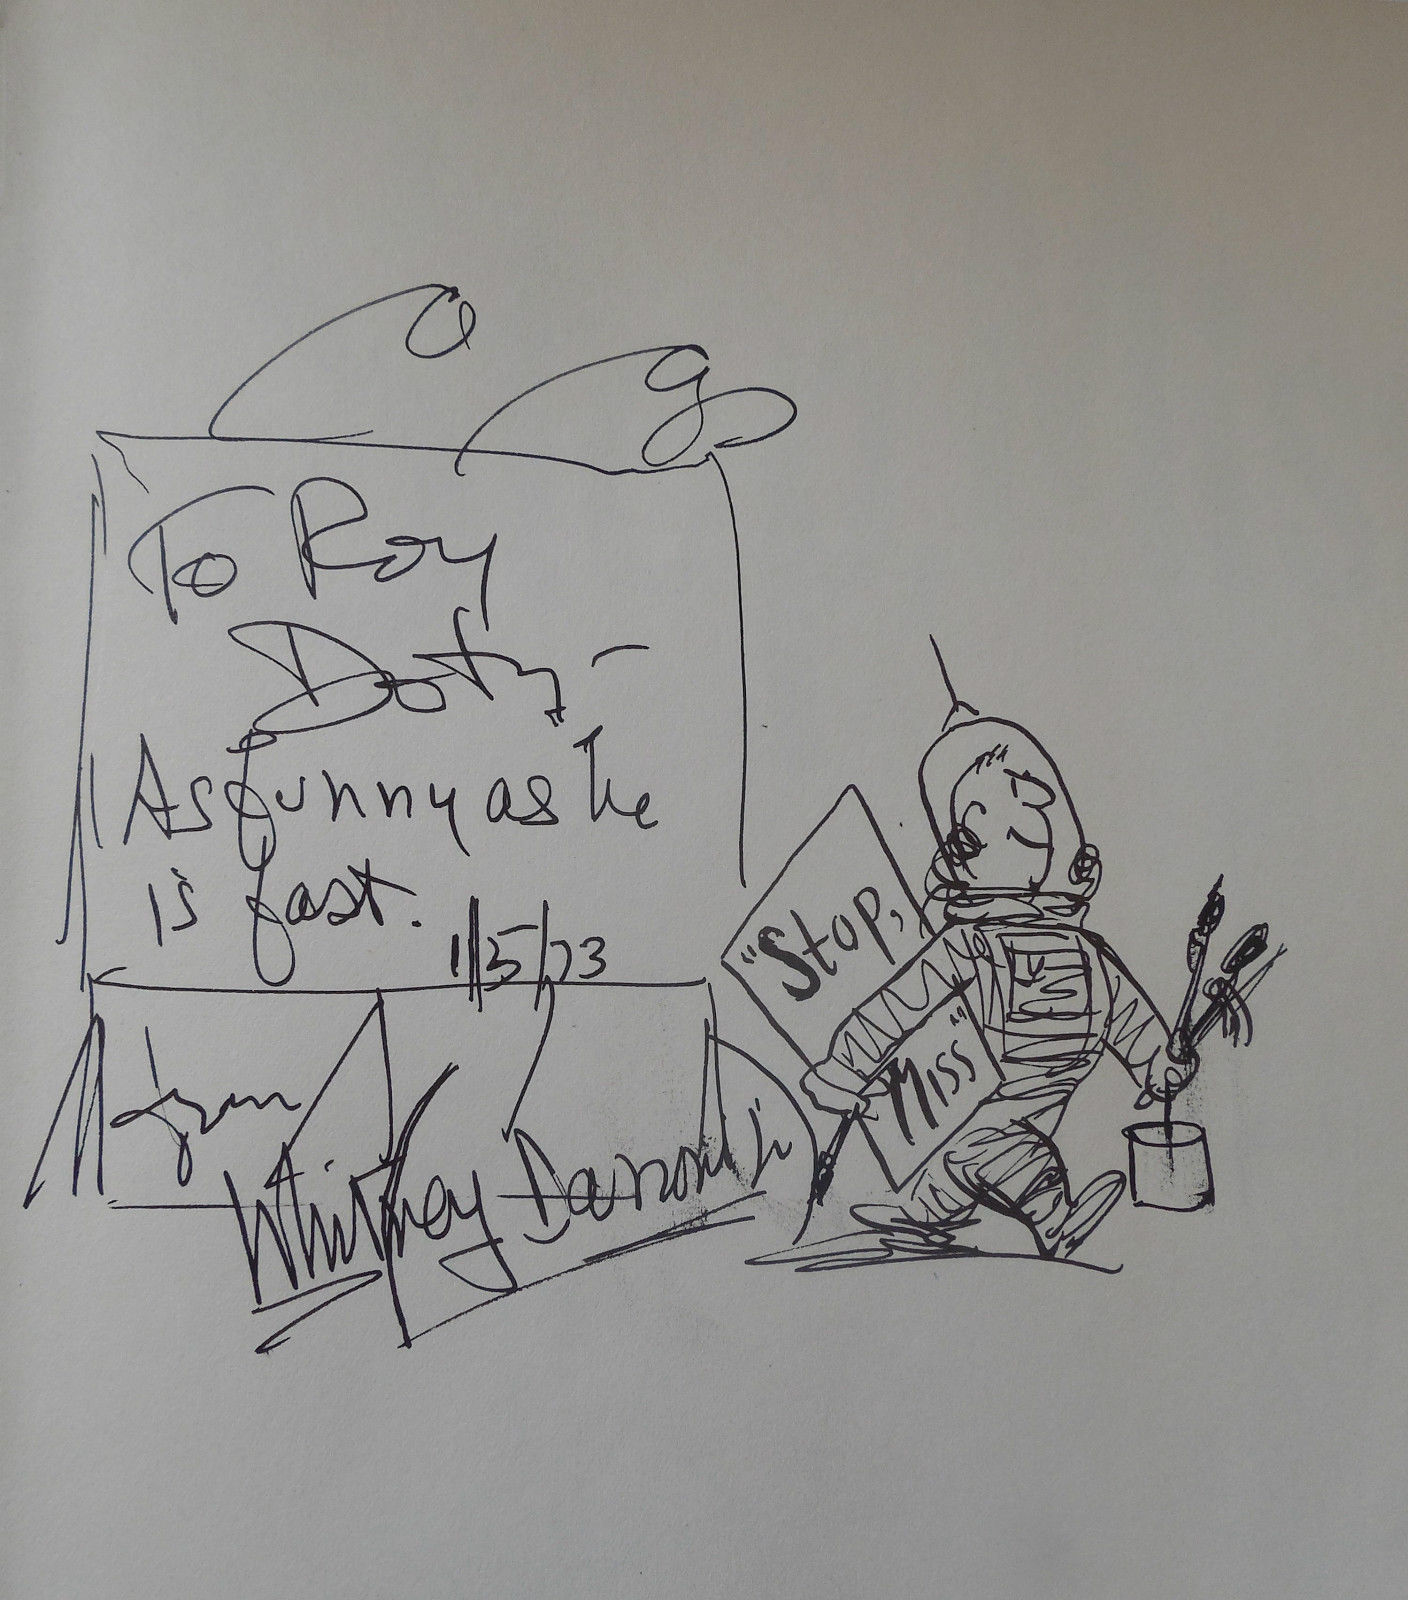 To Roy
Doty –
As funny as he
is fast.
1/15/73
from
Whitney Darrow Jr.
"Stop,
Miss"